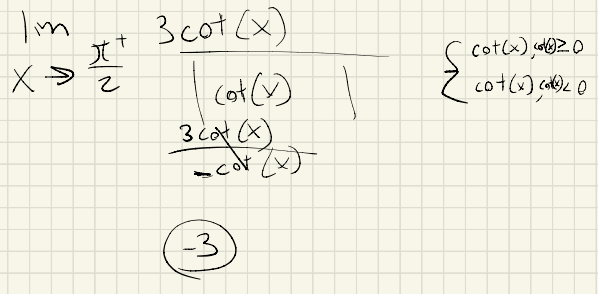 lim x→π⁺/2 3cot(x)/|cot(x)|
{ cot(x), cot(x)≥0
cot(x), cot(x)<0
3cot(x)/-cot(x)
-3